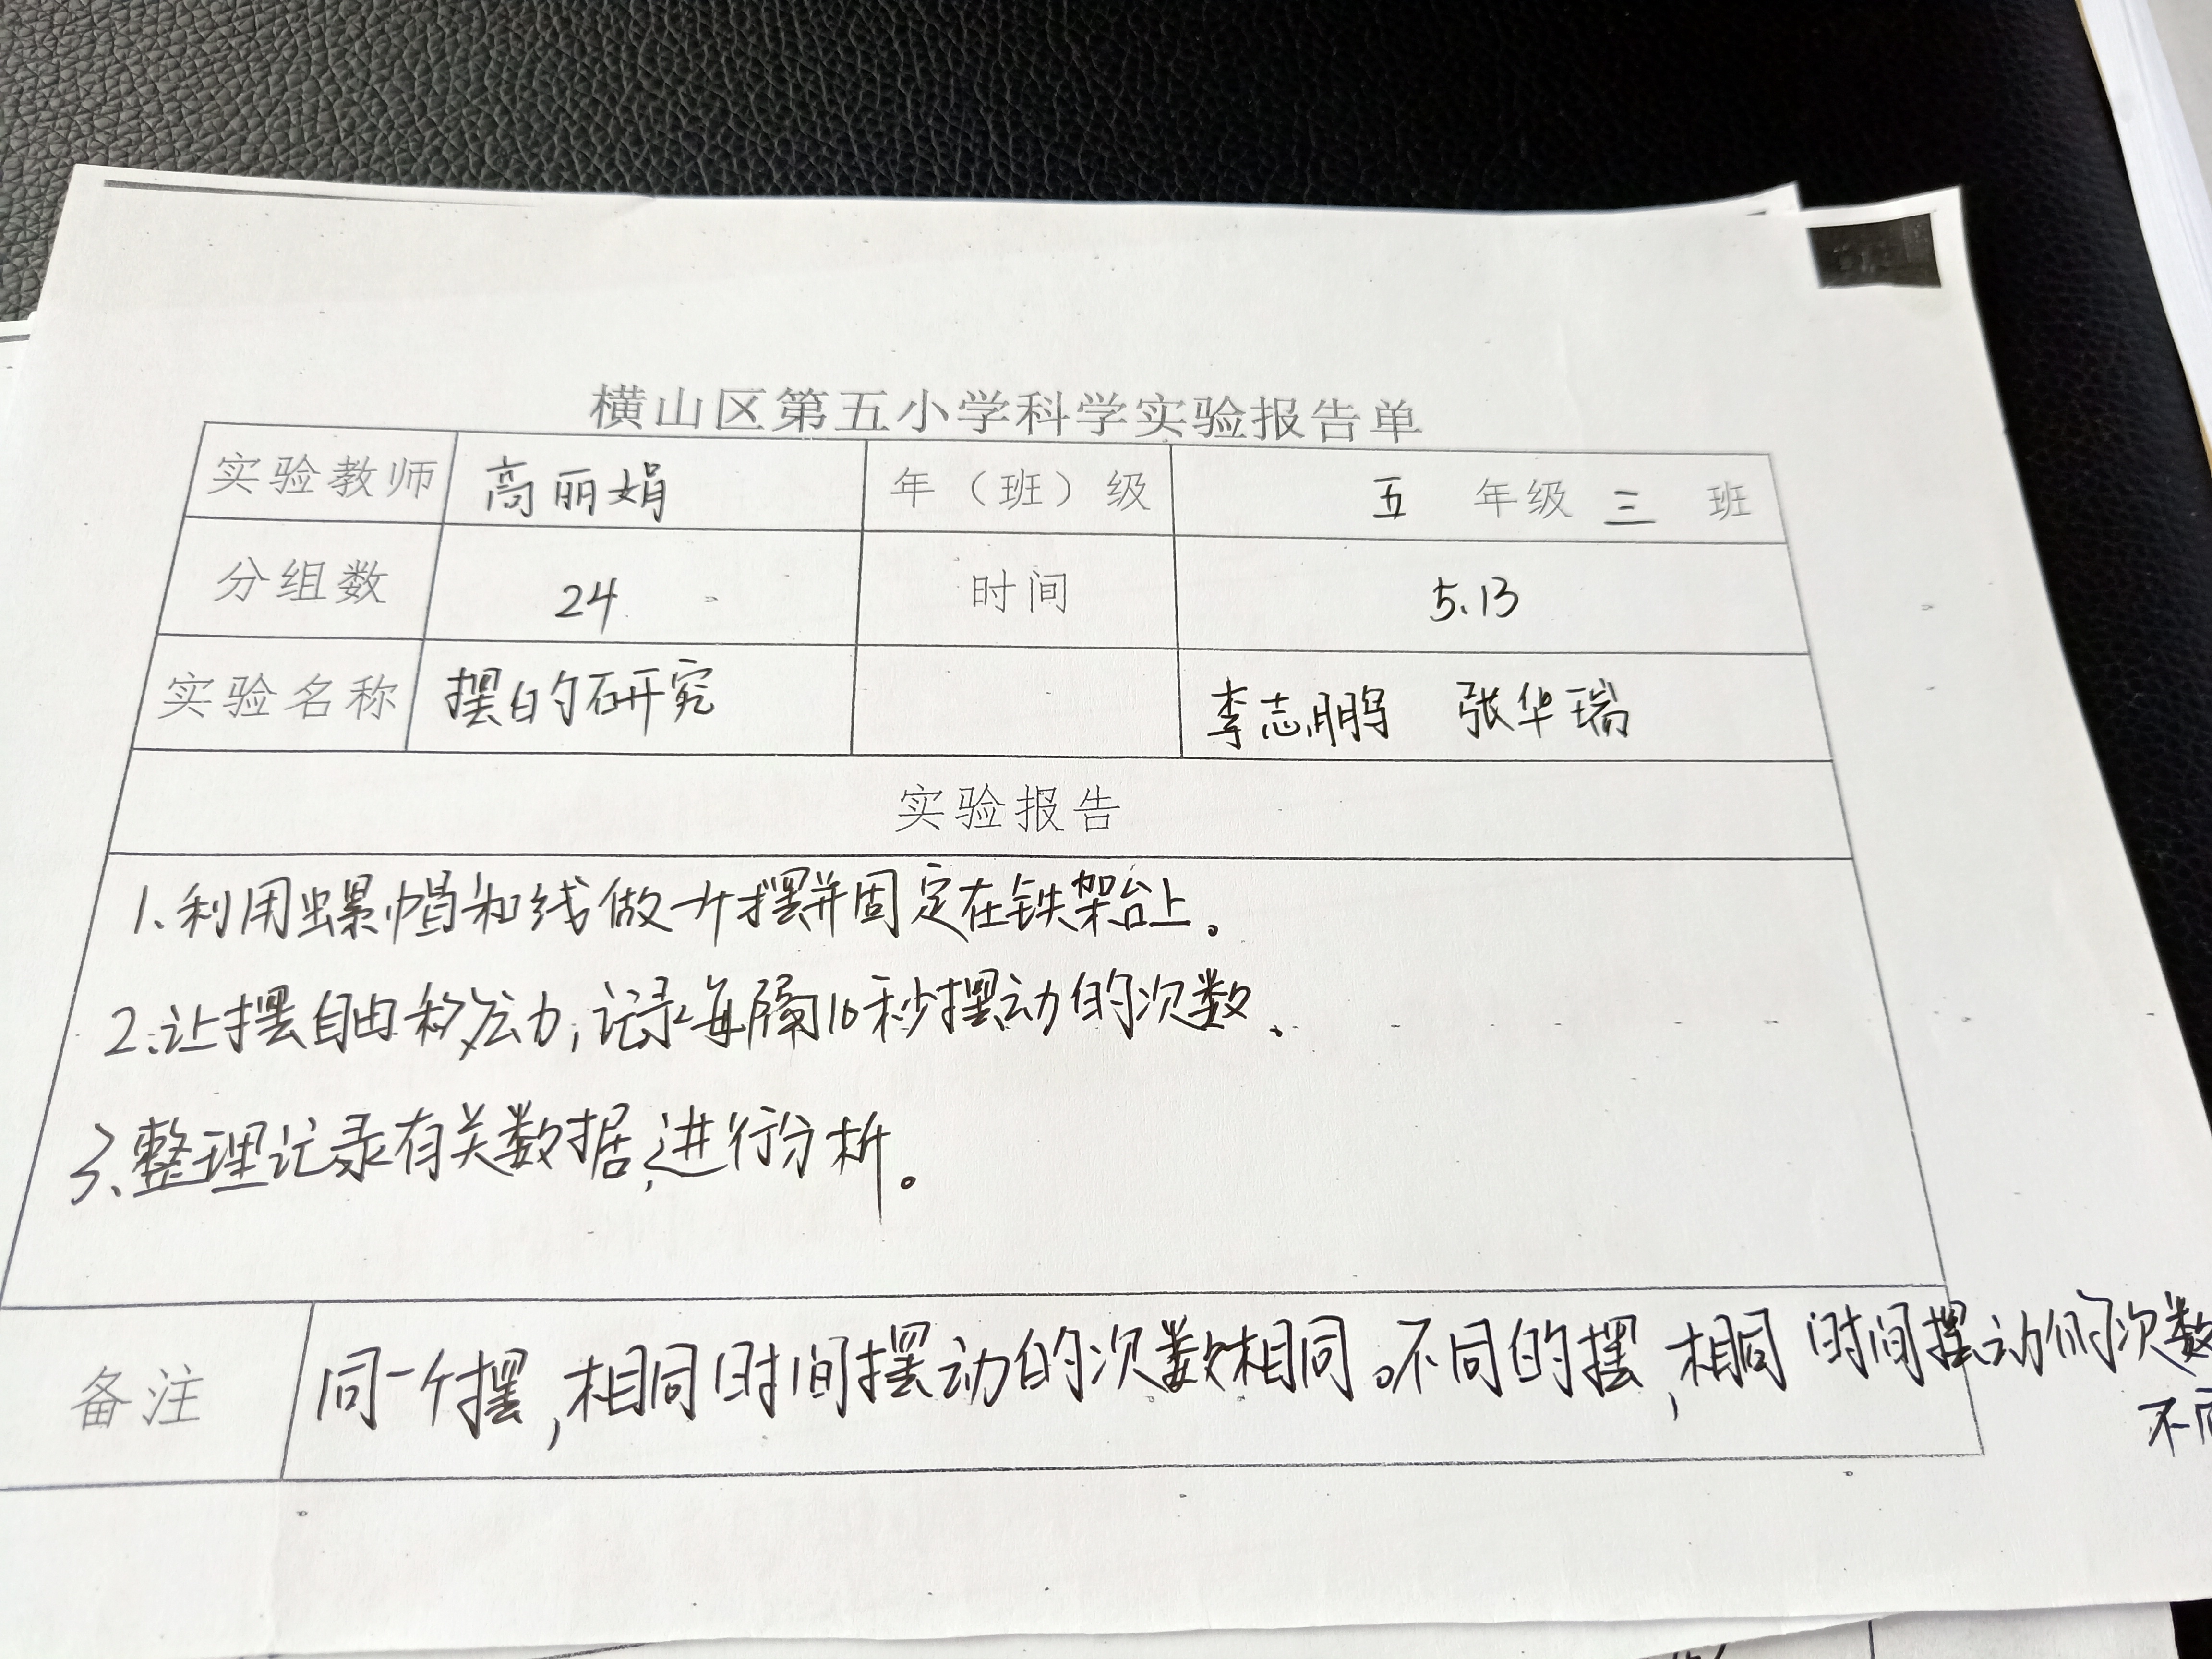 横山区第五小学科学实验报告单
实验教师 高丽娟 年（班）级 五 年级 三 班
分组数 24 时间 5.13
实验名称 摆的研究 李志鹏 张华瑞
实验报告
1、利用螺帽和线做一个摆并固定在铁架台上。
2、让摆自由移动,记录每隔10秒摆动的次数、
3、整理记录有关数据,进行分析。
备注 同一个摆,相同时间摆动的次数相同。不同的摆,相同时间摆动的次数
不同